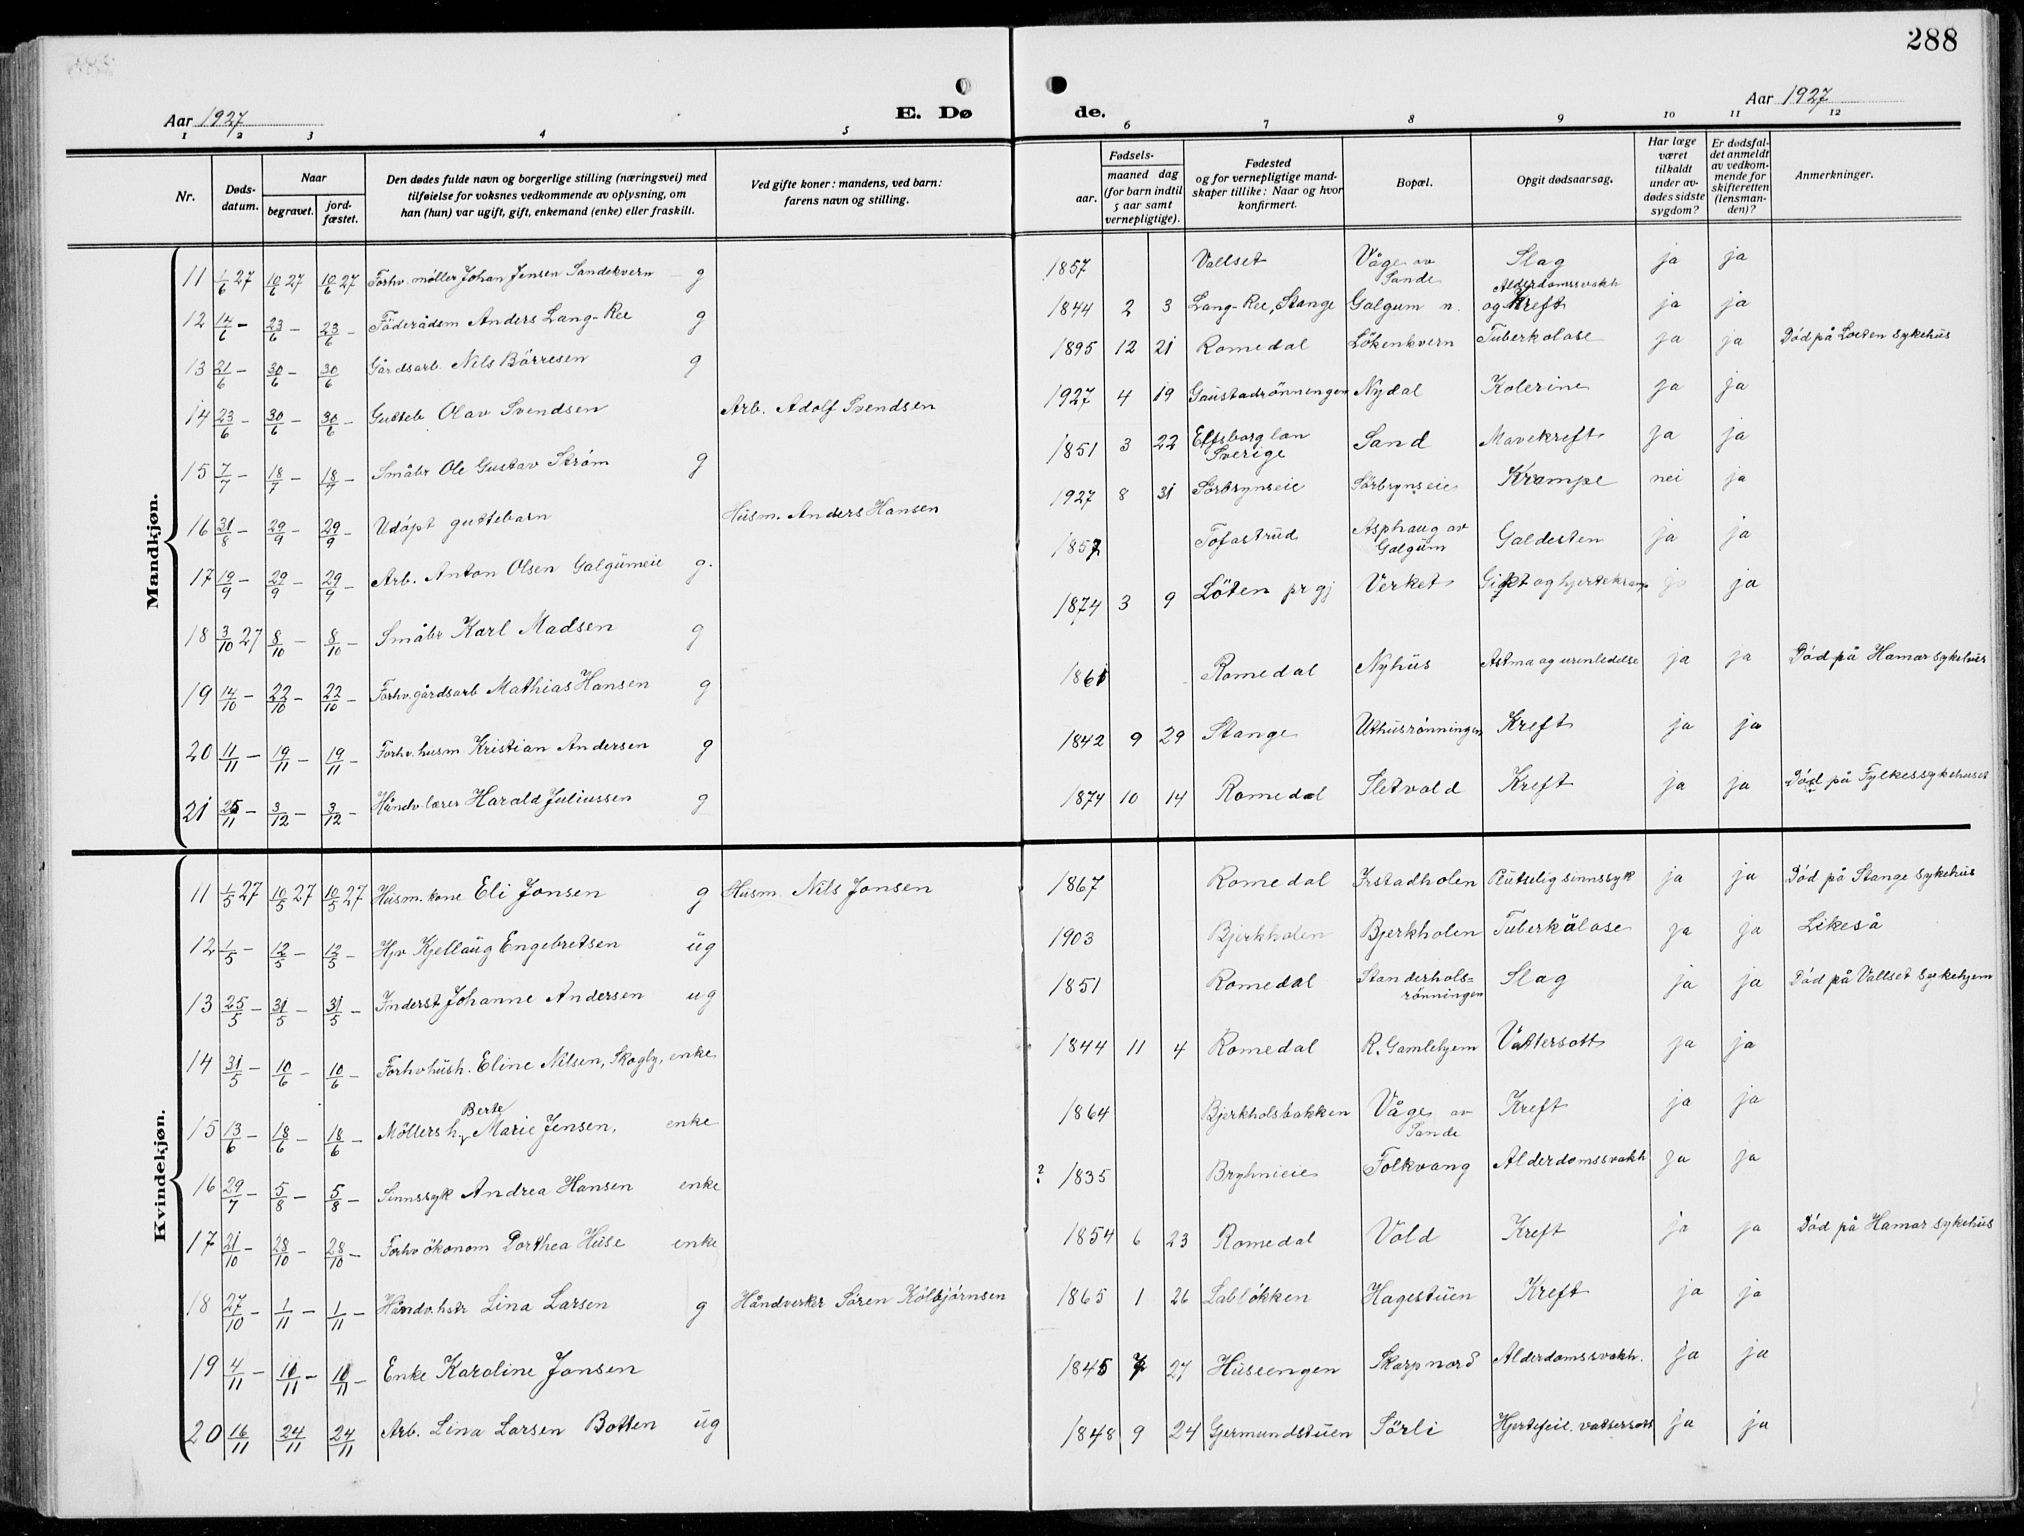 288
Aar 1927
E. Dø
de.
Aar 1927
1 2 3 4 5 6 7 8 9 10 11 12
Nr.
Døds-
datum.
Naar
begravet.
jord-
fæstet.
Den dødes fulde navn og borgerlige stilling (næringsvei) med
tilføielse for voksnes vedkommende av oplysning, om
han (hun) var ugift, gift, enkemand (enke) eller fraskilt.
Ved gifte koner: mandens, ved barn:
farens navn og stilling.
Fødsels-
aar.
maaned dag
(for barn indtil
5 aar samt
vernepligtige).
Fødested
og for vernepligtige mand-
skaper tillike: Naar og hvor
konfirmert.
Bopæl.
Opgit dødsaarsag.
Har læge
været
tilkaldt
under av-
dødes sidste
sygdom?
Er dødsfal-
det anmeldt
av vedkom-
mende for
skifteretten
(lensman-
den)?
Anmerkninger.
Mandkjøn.
11 1/6 27 10/6 27 10/6 27 Forhv. møller Johan Jensen Sandekvern g 1857 Vallset Våge av Sande Slag ja ja
12 14/6 - 23/6 - 23/6 - Föderådsm Anders Lang-Ree g 1844 2 3 Lang-Ree, Stange Galgum n. Alderdomssvakh og Kreft ja ja
13 21/6 - 30/6 - 30/6 Gårdsarb. Nils Börresen g 1895 12 21 Romedal Lökenkvern Tuberkolose ja ja Död på Löten sykehus
14 23/6 - 30/6 - 30/6 - Gutteb Olav Svendsen Arb. Adolf Svendsen 1927 4 19 Gaustadrönningen Nydal Kolerine ja ja
15 7/7 - 18/7 - 18/7 - Småbr Ole Gustav Ström g 1851 3 22 Elfsborg lan Sverige Sand Mavekreft ja ja
16 31/8 - 29/9 - 29/9 - Udöpt guttebarn Husm. Anders Hansen 1927 8 31 Sörbrynseie Sörbrynseie Krampe nei ja
17 19/9 - 29/9 - 29/9 - Arb. Anton Olsen Galgumeie g. 1857 Tofastrud Asphaug av Galgum Galdesten ja ja
18 3/10 27 8/10 - 8/10 - Småbr Karl Madsen g 1874 3 9 Löten pr gj Verket Gigt og hjertekramp ja ja
19 14/10 - 22/10 - 22/10 - Forhv. gårdsarb Mathias Hansen g 1861 Romedal Nyhus Astma og urinledelse ja ja Död på Hamar sykehus
20 11/11 - 19/11 - 19/11 - Forhv. husm Kristian Andersen g 1842 9 29 Stange Uthusrönningen Kreft ja ja
21 25/11 - 3/12 - 3/12 - Håndv. lærer Harald Juliussen g 1874 10 14 Romedal Sletvold Kreft ja ja Död på Fylkessykehuset
Kvindekjøn.
11 1/5 27 10/5 27 10/5 27 Husm. kone Eli Jonsen g Husm. Nils Jonsen 1867 Romedal Irstadholen sinnssyk ja ja Död på Stange sykehus
12 1/5 - 12/5 - 12/5 - Hjv Kjellaug Engebretsen ug 1903 Bjerkholen Bjerkholen Tuberkulose ja ja Likeså
13 25/5 - 31/5 - 31/5 - Inderst Johanne Andersen ug 1851 Romedal Standerhols- rönningen Slag ja ja Död på Vallset sykehjem
14 31/5 - 10/6 - 10/6 - Forhv hush. Eline Nilsen, Skogly, enke 1844 11 4 Romedal R. Gamlehjem Vattersott ja ja
15 13/6 - 18/6 - 18/6 - Möllers h. Berte Marie Jensen, enke 1864 Bjerkholsbakken Våge av Sande Kreft ja ja
16 29/7 - 5/8 - 5/8 - Sinnssyk Andrea Hansen enke ? 1835 Bryhnieie Folkvang Alderdomssvakh ja ja
17 21/10 - 28/10 - 28/10 - Forhv ökonom Dorthea Huse enke 1854 6 23 Romedal Vold Kreft ja ja Död på Hamar sykehus
18 27/10 - 1/11 - 1/11 - Håndv. hstr Lina Larsen g Håndverker Sören Kolbjörnsen 1865 1 26 Lablökken Hagestuen Kreft ja ja
19 4/11 - 10/11 - 10/11 - Enke Karoline Jonsen 1845 7 27 Huseengen Skarpnord Alderdomssvakh. ja ja
20 16/11 24/11 24/11 Arb. Lina Larsen Botten ug 1848 9 24 Gjermundstuen Sörli Hjertefeil. vattersott ja ja